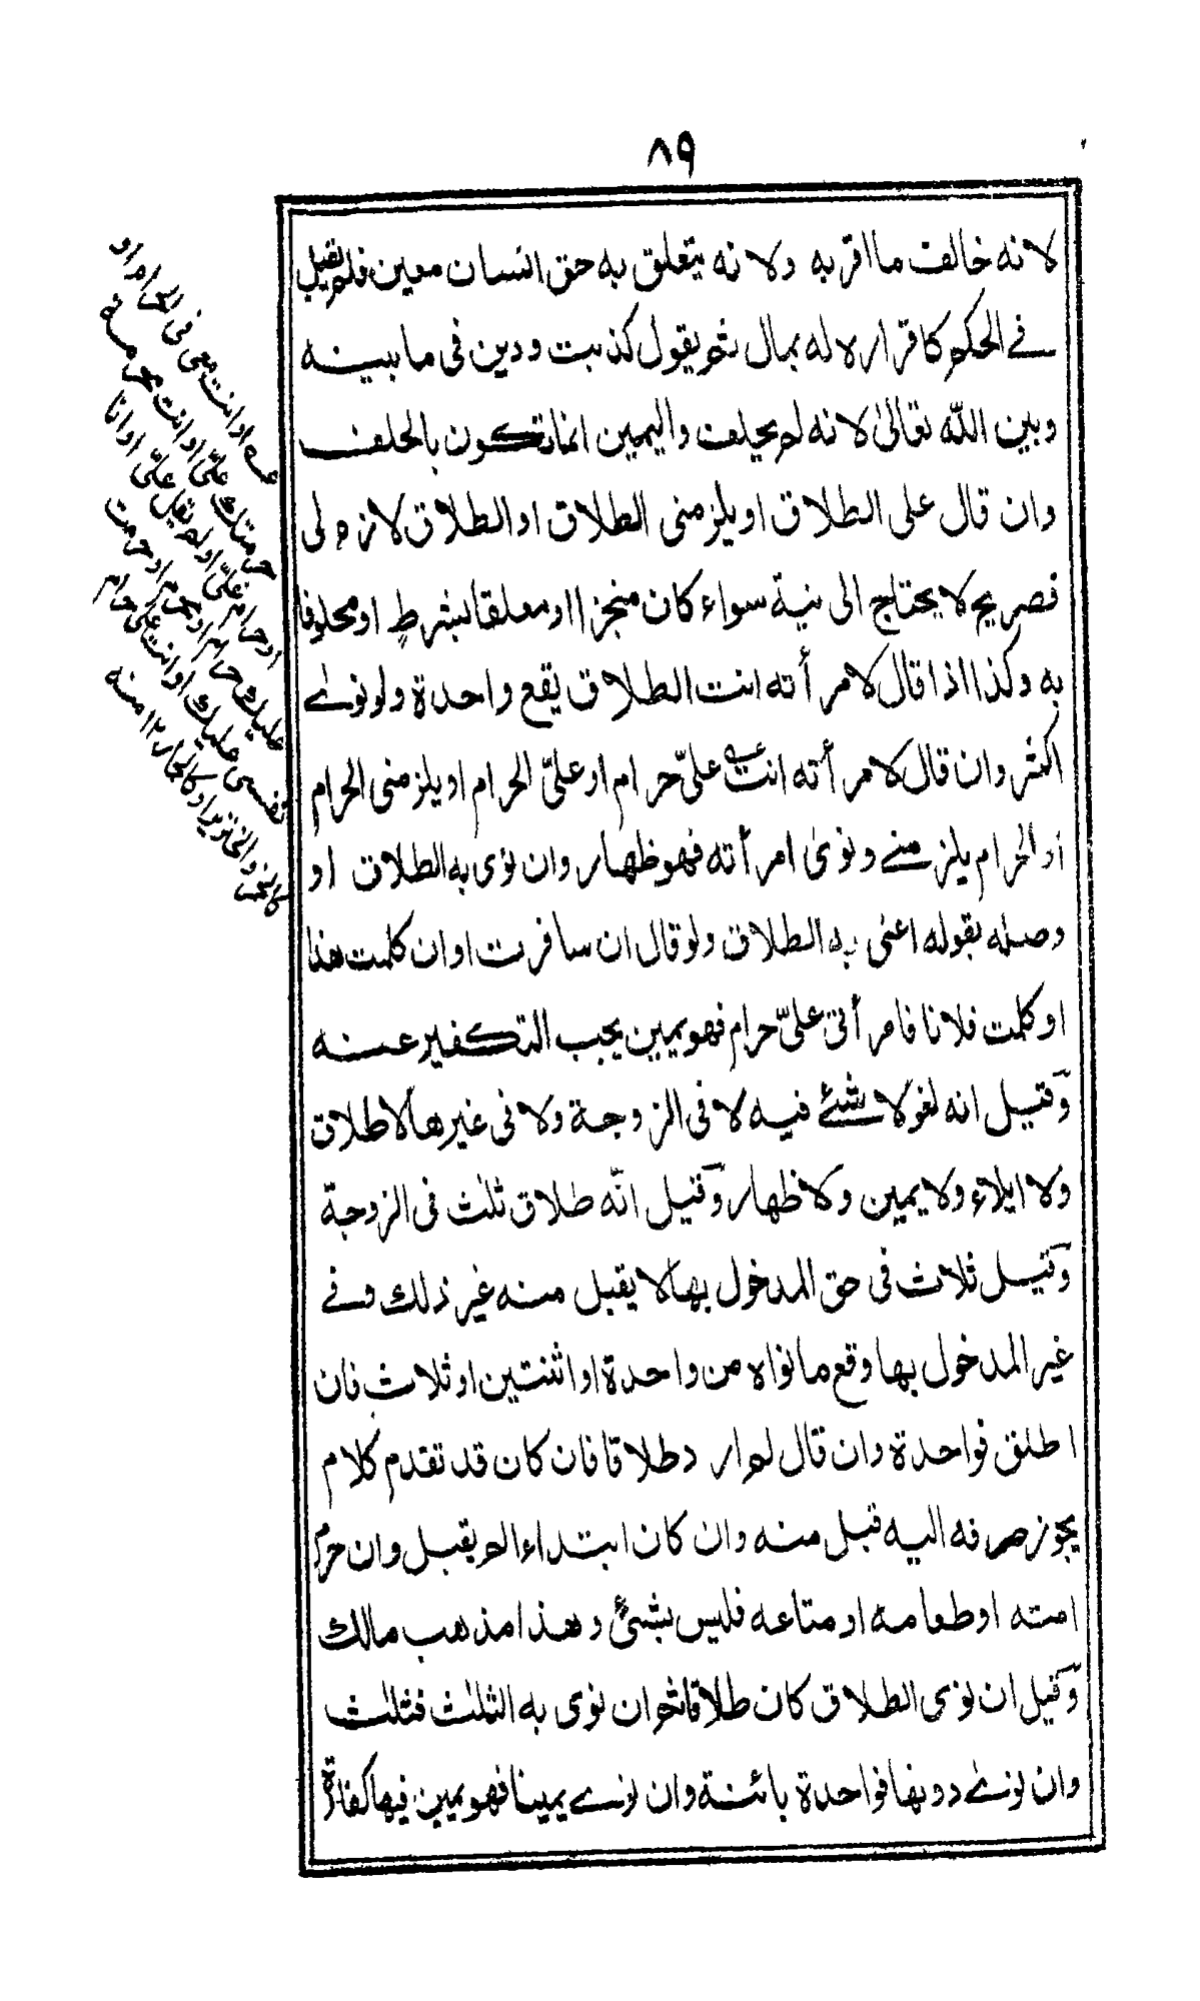 ٨٩
لانه خالف ما اقر به ولانه يتعلق به حق انسان معين فلم يقبل
فے الحكم كاقراره له بمال ثم يقول كذبت ودين فى ما بينه
وبين الله تعالىٰ لانه لم يحلف واليمين انما تكون بالحلف
وان قال على الطلاق او يلزمنى الطلاق او الطلاق لازم لى
فصريح لا يحتاج الى نية سواء كان منجزا او معلقا بشرطٍ او محلوفا
به وكذا اذا قال لامرأته انت الطلاق يقع واحدة ولو نوے
اكثر وان قال لامرأته انت عه علىّ حرام او علىّ الحرام او يلزمنى الحرام
او الحرام يلزمنے ونوىٰ امرأته فهو ظهار وان نوى به الطلاق او
وصله بقوله اعنى به الطلاق ولو قال ان سافرت او ان كلمت هذا
او كلمت فلانا فامرأتى علىّ حرام فهو يمين يجب التكفير عنه
وقيل انه لغو لا شئے فيه لا فى الزوجة ولا فى غيرها لا طلاق
ولا ايلاء ولا يمين ولا ظهار وقيل انّه طلاق ثلٰث فى الزوجة
وقيل ثلاث فى حق المدخول بها لا يقبل منه غير ذلك وفے
غير المدخول بها وقع ما نواه من واحدة او اثنتين او ثلاث فان
اطلق فواحدة وان قال لم ارد طلاقا فان كان قد تقدم كلام
يجوز صرفه اليه قبل منه وان كان ابتداء لم يقبل وان حرم
امته او طعامه او متاعه فليس بشئ وهذا مذهب مالك
وقيل ان نوى الطلاق كان طلاقا ثم ان نوى به الثلٰث فثلٰث
وان نوے دونها فواحدة بائنة وان نوے يمينا فهو يمين فيها كفارة
عه او انت معى فى الحرام او
حرمتك علىّ او انت محرمة
او حرام علىّ او لم يقل علىّ او انا
عليك حرام او محرم او حرمت
نفسى عليك او انت على حرام
كالخمر والخنزير او كالخمار ١٢ منه